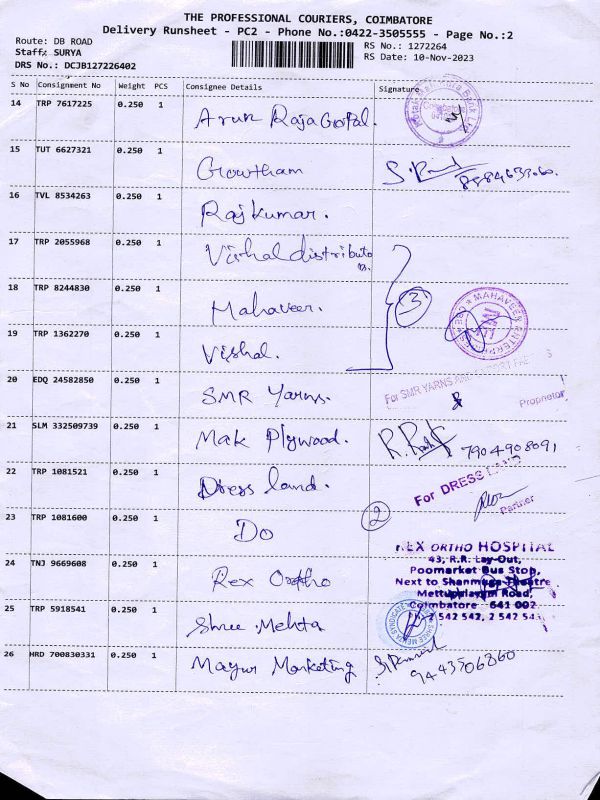 THE PROFESSIONAL COURIERS, COIMBATORE
Delivery Runsheet - PC2 - Phone No.:0422-3505555 - Page No.:2
Route: DB ROAD
RS No.: 1272264
Staff: SURYA
RS Date: 10-Nov-2023
DRS No.: DCJB127226402
S No Consignment No Weight PCS Consignee Details Signature
14 TRP 7617225 0.250 1 Arun RajaGopal.
15 TUT 6627321 0.250 1 Growtham
16 TVL 8534263 0.250 1 Rajkumar.
17 TRP 2055968 0.250 1 Vishal distributo
rs.
18 TRP 8244830 0.250 1 Mahaveer. 3 MAHAVEER ENTERPRISES
19 TRP 1362270 0.250 1 Vishal.
20 EDQ 24582850 0.250 1 SMR Yarns. For SMR YARNS AND Proprietor
21 SLM 332509739 0.250 1 Mak Plywood. 7904908091
22 TRP 1081521 0.250 1 Dress land. For DRESS LAND
Partner
23 TRP 1081600 0.250 1 Do 2
24 TNJ 9669608 0.250 1 Rex Ortho
REX ORTHO HOSPITAL
43, R.R. Lay-Out,
Poomarket Bus Stop,
Next to Shanmuga Theatre
Mettupalayam Road,
Coimbatore 641 002
Ph: 2 542 542, 2 542 543
25 TRP 5918541 0.250 1 Shree Mehta
26 HRD 700830331 0.250 1 Mayur Marketing 9443506860